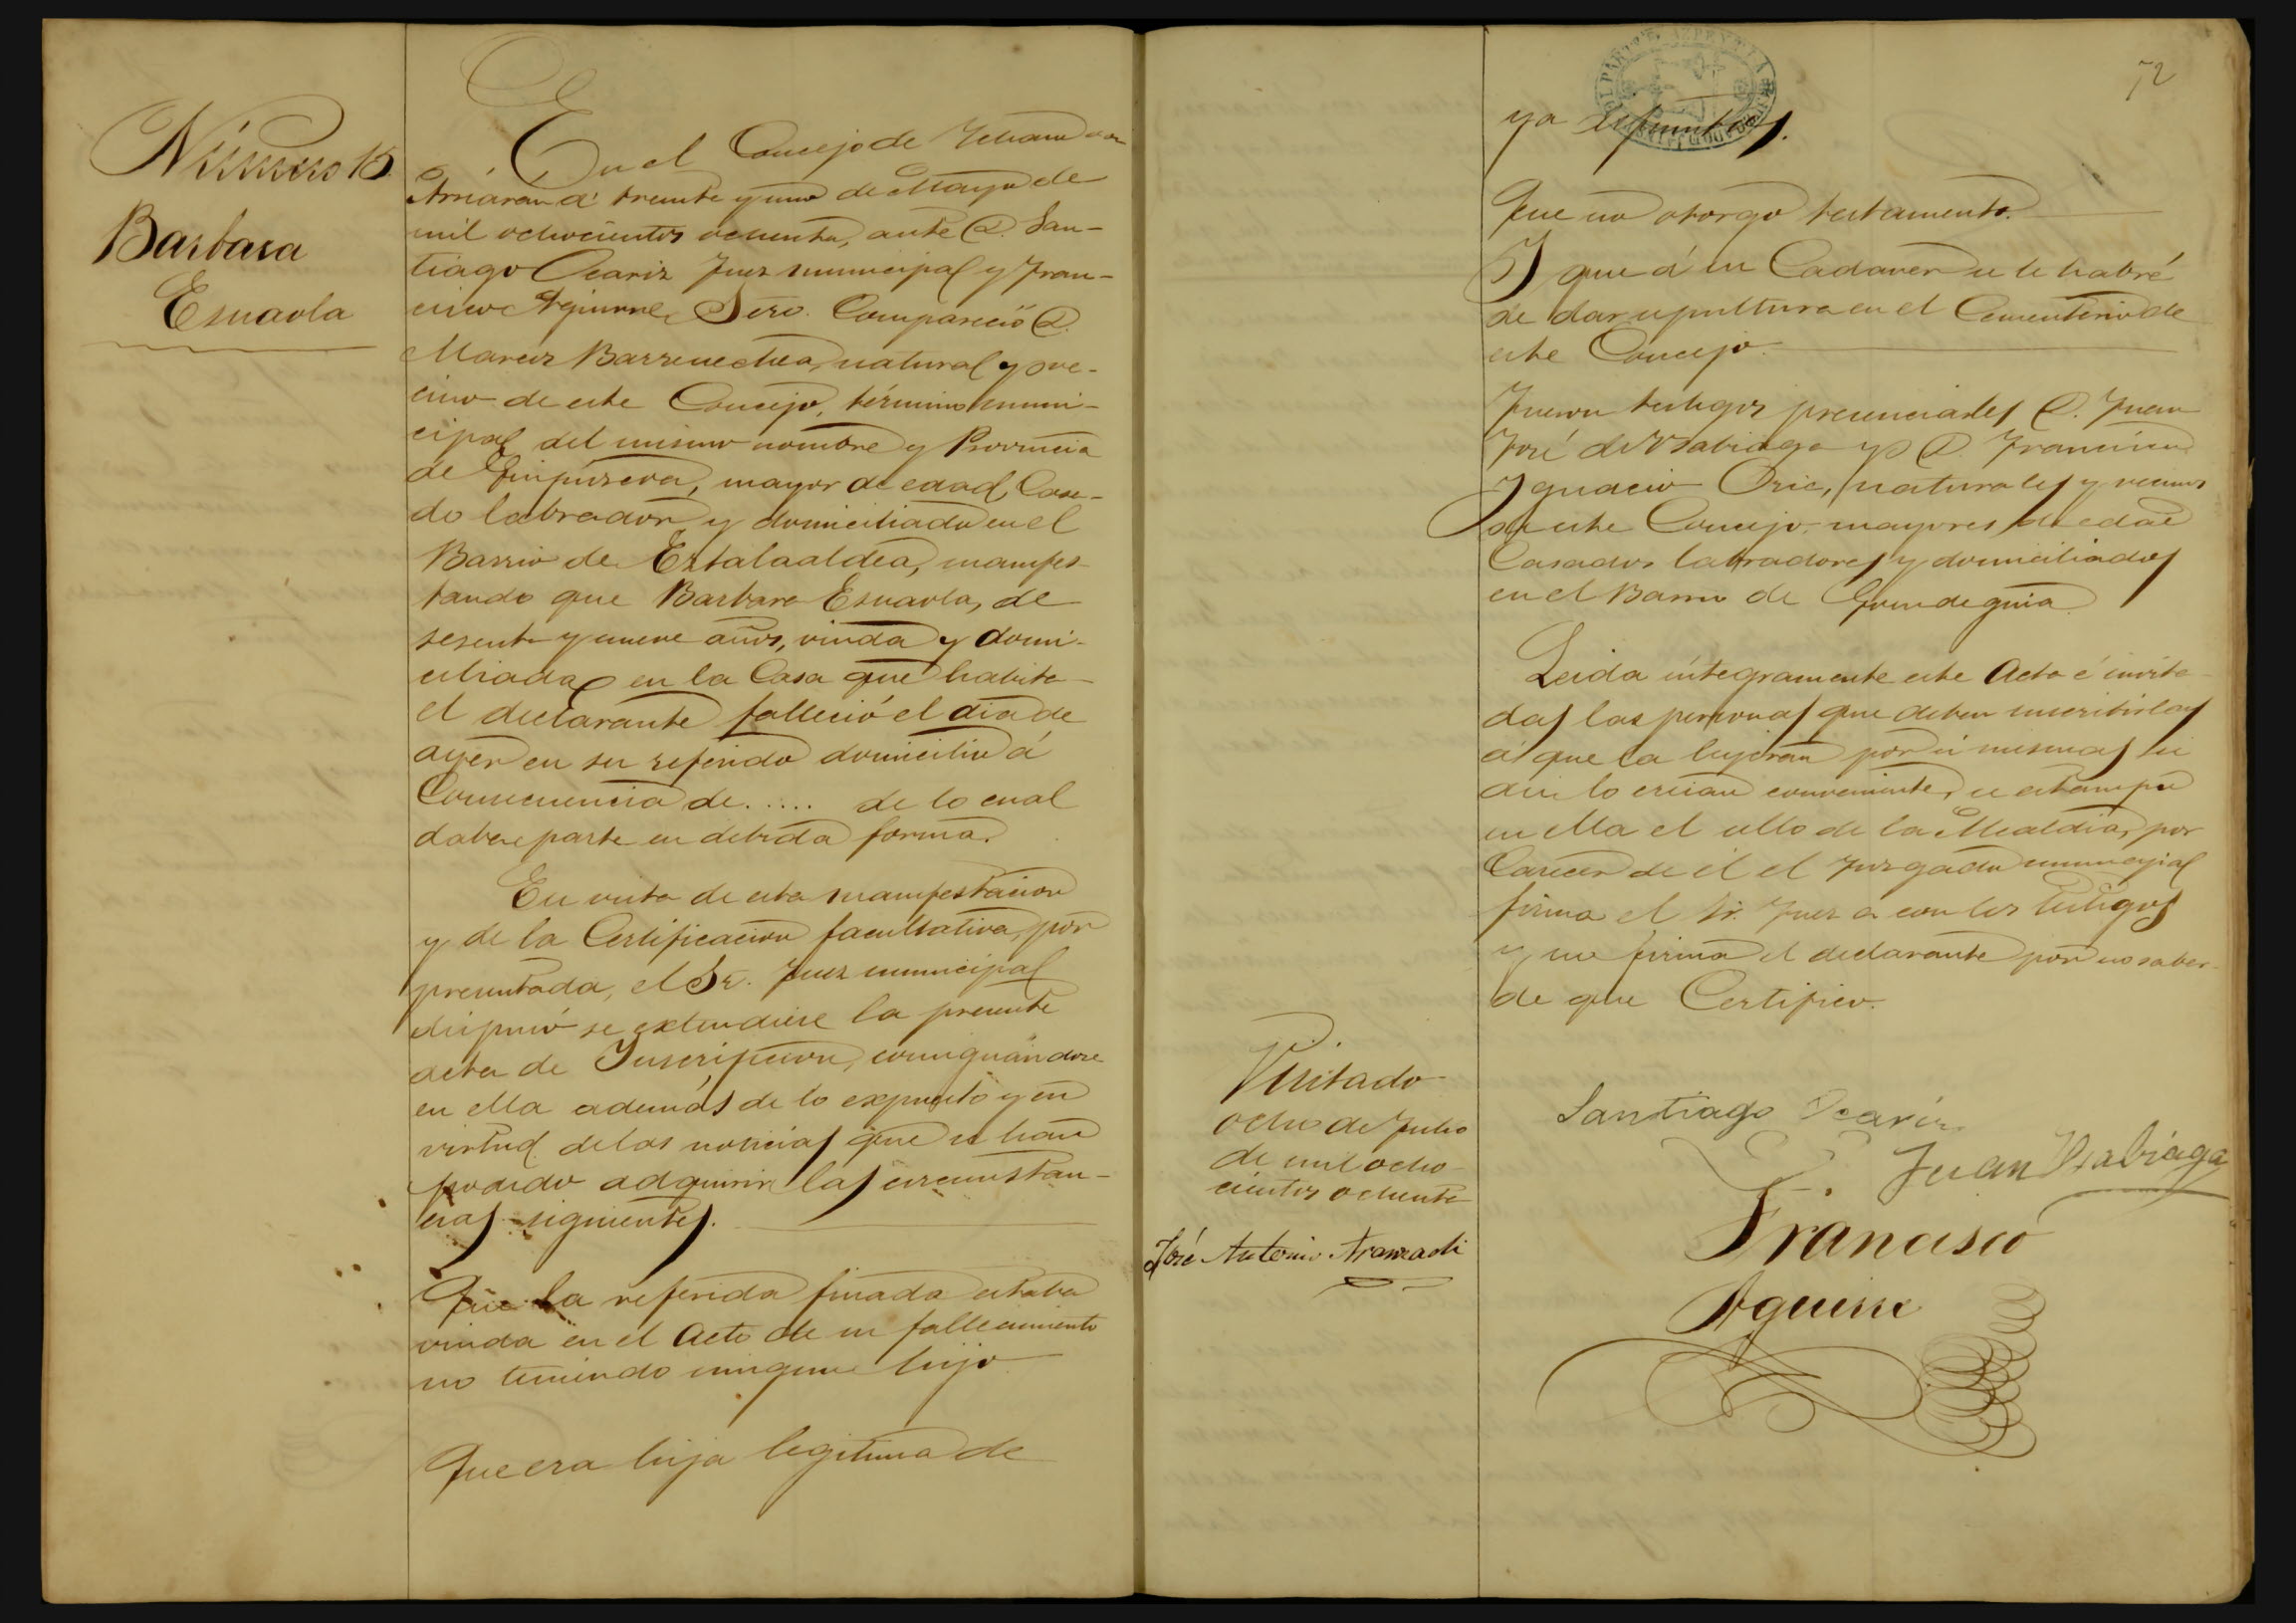 Número 15
Barbara
Esnaola
En el Concejo de Ichaso con
Arriarán á treinta y uno de Mayo de
mil ochocientos ochenta, ante D. San-
tiago Ocariz Juez municipal y Fran-
cisco Aguirre Srio. Compareció D.
Marcos Barrenechea, natural y ve-
cino de este Concejo, término muni-
cipal del mismo nombre y Provincia
de Guipúzcoa, mayor de edad, Casa-
do labrador y domiciliado en el
Barrio de Extalaaldea, manifes-
tando que Barbara Esnaola, de
sesenta y nueve años, viuda y domi-
ciliada en la Casa que habita
el declarante falleció el dia de
ayer en su referido domicilio á
Consecuencia de..... de lo cual
daba parte en debida forma.
En vista de esta manifestacion
y de la Certificacion facultativa, por
presentada, el Sr. Juez municipal
dispuso se extendiese la presente
acta de Inscripcion, consignándose
en ella además de lo expuesto y en
virtud de las noticias que se han
podido adquirir las circunstan-
cias siguientes.
Que la referida finada estaba
viuda en el Acto de su fallecimiento
no teniendo ningun hijo
Que era hija legitima de
72
EL PARTE AZPEITIA
ya difuntos.
Que no otorgo testamento.
Y que á su Cadaver se le habrá
de dar sepultura en el Cementerio de
este Concejo.
Fueron testigos presenciales D. Juan
José de Usabiaga y D. Francisco
Ignacio Oria, naturales y vecinos
de este Concejo, mayores de edad
Casados labradores y domiciliados
en el Barrio de
Leida íntegramente este Acta é invita-
das las personas que deben suscribirla
á que la leyeran por sí mismas si
asi lo creían conveniente, se estampó
en ella el sello de la Alcaldia, por
Carecer de él el Juzgado municipal
firma el Sr. Juez con los testigos
y no firma el declarante por no saber
de que Certifico.
Visitado
ocho de Julio
de mil ocho-
cientos ochenta
José Antonio Aramadi
Santiago Ocariz
Juan Usabiaga
Francisco
Aguirre